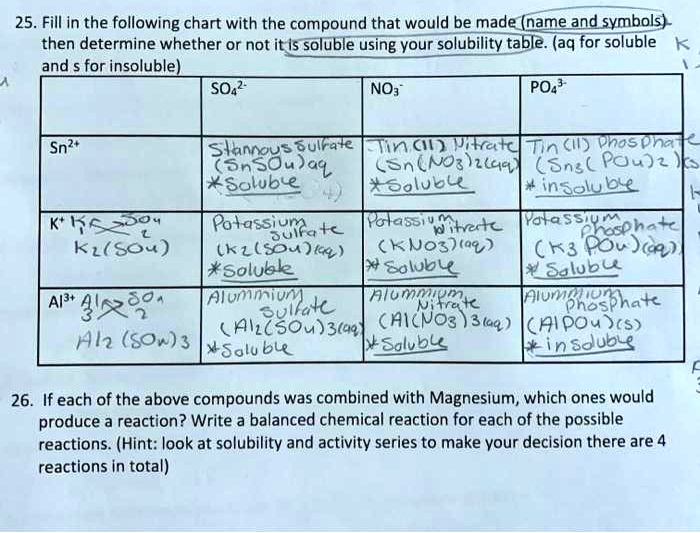 25. Fill in the following chart with the compound that would be made (name and symbols)
then determine whether or not it is soluble using your solubility table. (aq for soluble
and s for insoluble)
SO₄²⁻
NO₃⁻
PO₄³⁻
Sn²⁺
Stannous Sulfate
(SnSO4)aq
*Soluble
Tin (II) Nitrate
(Sn(NO3)2(aq)
*Soluble
Tin (II) Phosphate
(Sn3(PO4)2)(s
*insoluble
K⁺ K SO4
2
K2(SO4)
Potassium
Sulfate
(K2(SO4)(aq)
*Soluble
Potassium
Nitrate
(KNO3)(aq)
*Soluble
Potassium
Phosphate
(K3 PO4)(aq)
*Soluble
Al³⁺ Al SO4
3 2
Al2 (SO4)3
Alumminium
Sulfate
(Al2(SO4)3(aq)
*Soluble
Alumminum
Nitrate
(Al(NO3)3(aq)
*Soluble
Alumminum
Phosphate
(AlPO4)(s)
*insoluble
26. If each of the above compounds was combined with Magnesium, which ones would
produce a reaction? Write a balanced chemical reaction for each of the possible
reactions. (Hint: look at solubility and activity series to make your decision there are 4
reactions in total)